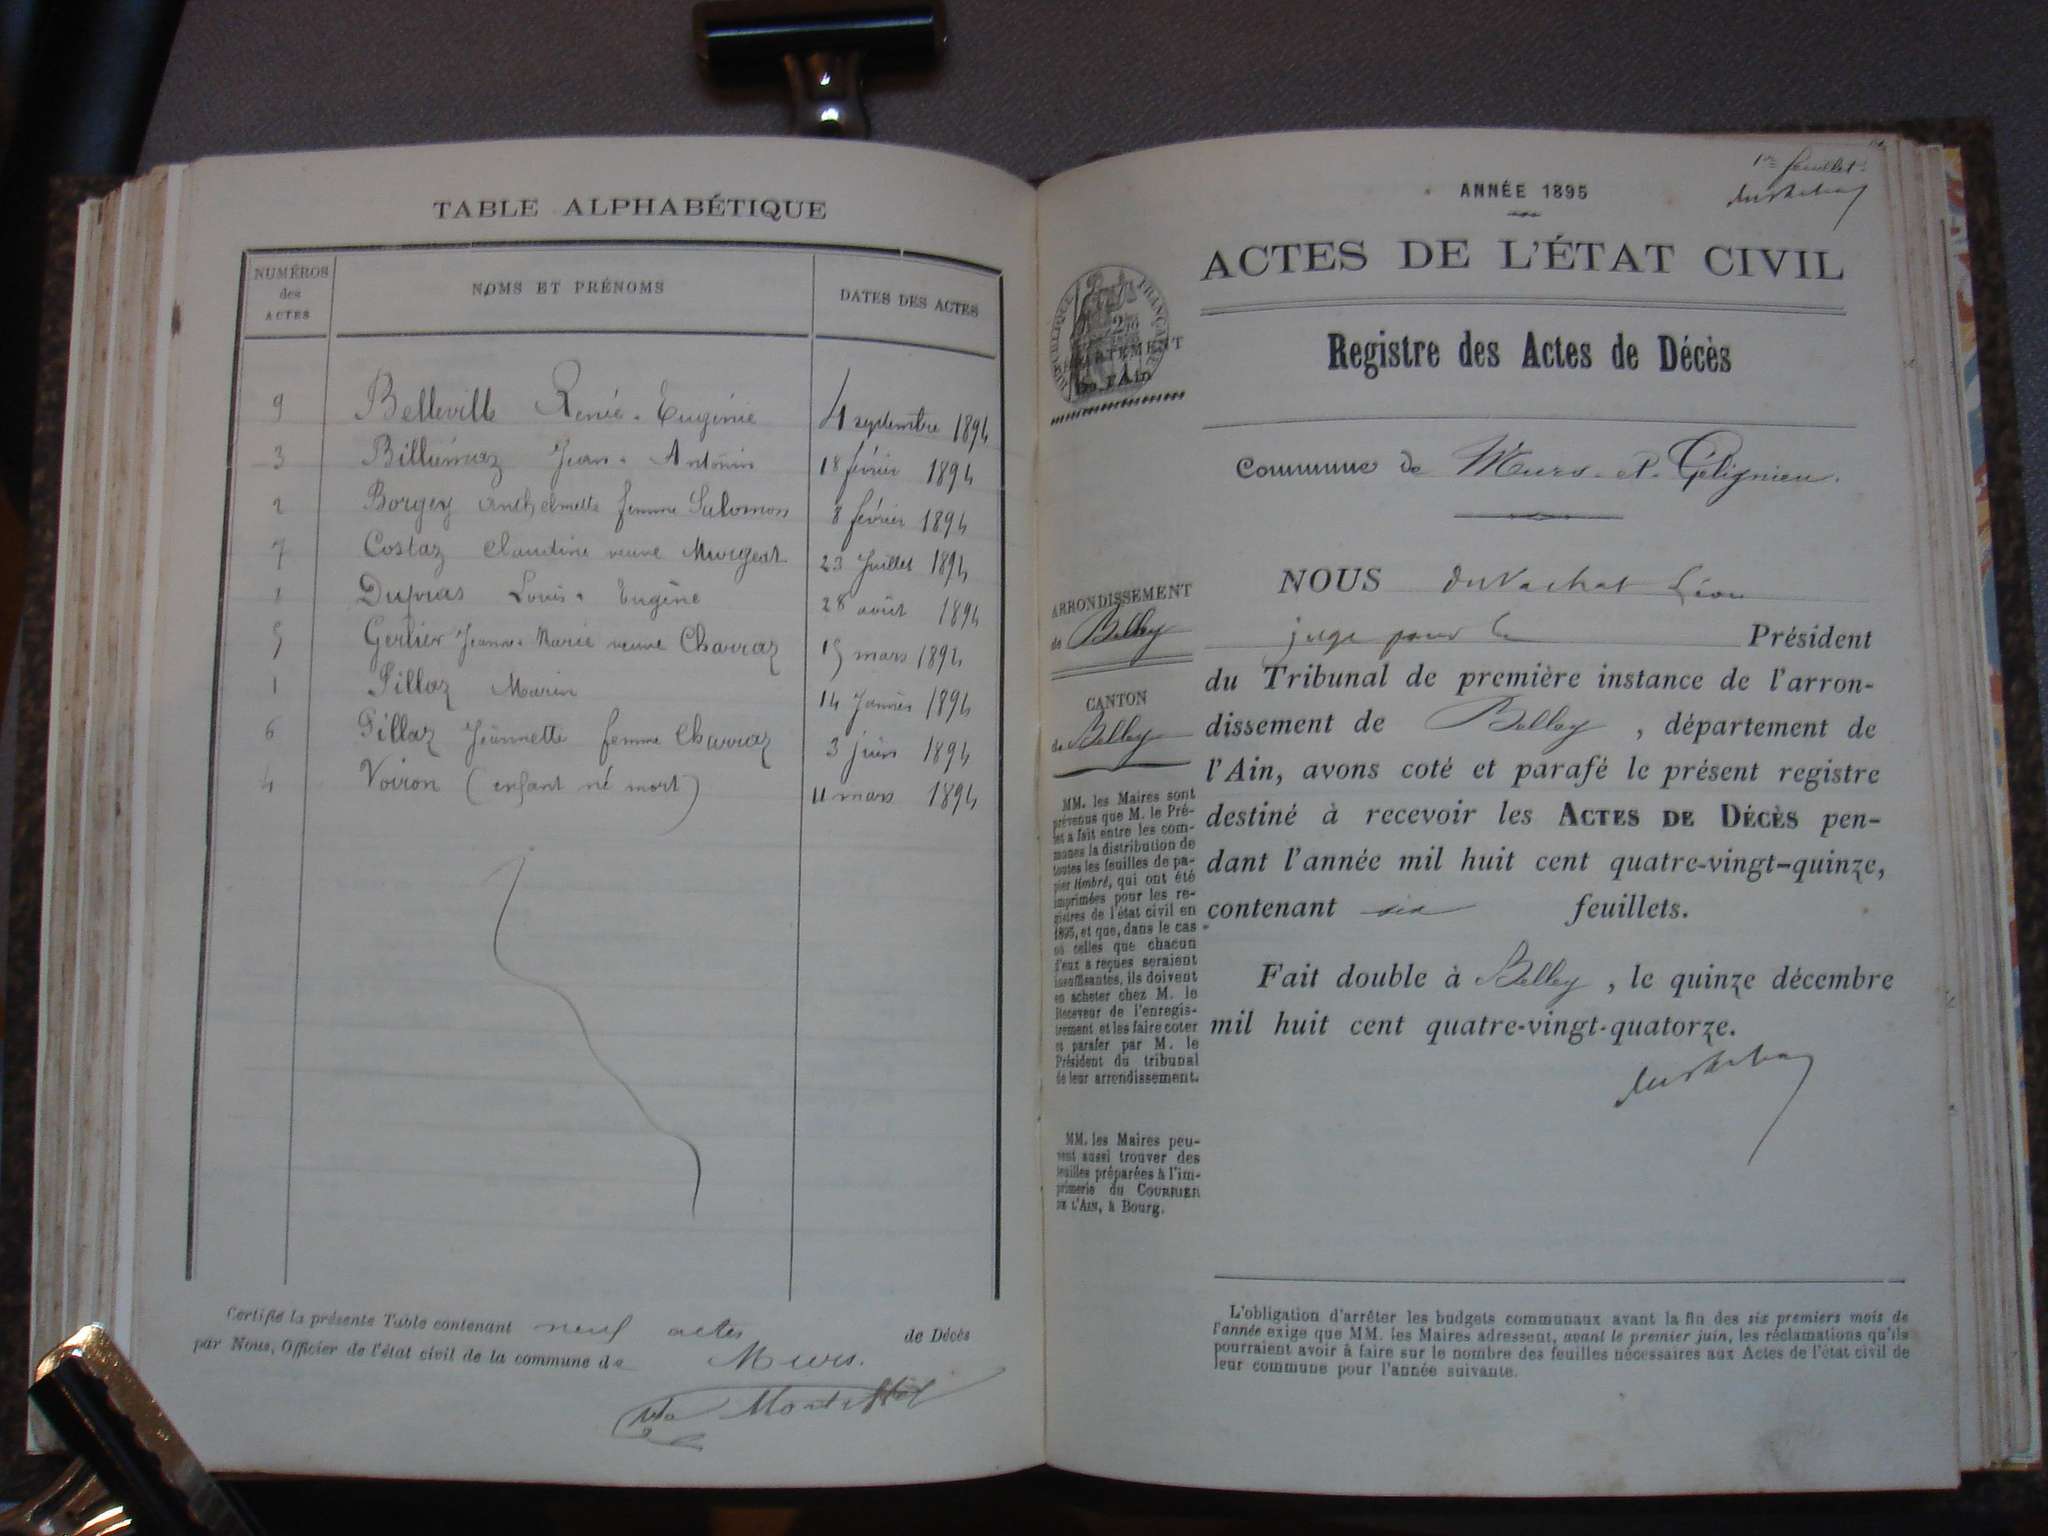 TABLE ALPHABÉTIQUE
NUMÉROS des ACTES
NOMS ET PRÉNOMS
DATES DES ACTES
9 Belleville Renée-Eugénie 4 septembre 1894
3 Billiémaz Jean-Antonin 18 février 1894
2 Borgey Anthelmette femme Salomon 8 février 1894
7 Costaz Claudine veuve Murgeat 23 Juillet 1894
8 Dupras Louis-Eugène 28 août 1894
5 Gerlier Jeanne-Marie veuve Charraz 15 mars 1894
1 Pillaz Marin 14 Janvier 1894
6 Pillaz Jeannette femme Charraz 3 juin 1894
4 Voiron (enfant né mort) 11 mars 1894
Certifié la présente Table contenant neuf actes de Décès
par Nous, Officier de l'état civil de la commune de Murs.
1er feuillet
ANNÉE 1895
ACTES DE L'ÉTAT CIVIL
RÉPUBLIQUE FRANÇAISE
DÉPARTEMENT
De l'Ain
Registre des Actes de Décès
Commune de Murs-et-Gélignieu.
ARRONDISSEMENT
de Belley
CANTON
de Belley
MM. les Maires sont
prévenus que M. le Pré-
fet a fait entre les com-
munes la distribution de
toutes les feuilles de pa-
pier timbré, qui ont été
imprimées pour les re-
gistres de l'état civil en
1895, et que, dans le cas
où celles que chacun
d'eux a reçues seraient
insuffisantes, ils doivent
en acheter chez M. le
Receveur de l'enregis-
trement et les faire coter
et parafer par M. le
Président du tribunal
de leur arrondissement.
MM. les Maires peu-
vent aussi trouver des
feuilles préparées à l'im-
primerie du COURRIER
DE L'AIN, à Bourg.
NOUS duVachat Léon
juge pour le Président
du Tribunal de première instance de l'arron-
dissement de Belley, département de
l'Ain, avons coté et parafé le présent registre
destiné à recevoir les ACTES DE DÉCÈS pen-
dant l'année mil huit cent quatre-vingt-quinze,
contenant six feuillets.
Fait double à Belley, le quinze décembre
mil huit cent quatre-vingt-quatorze.
L'obligation d'arrêter les budgets communaux avant la fin des six premiers mois de
l'année exige que MM. les Maires adressent, avant le premier juin, les réclamations qu'ils
pourraient avoir à faire sur le nombre des feuilles nécessaires aux Actes de l'état civil de
leur commune pour l'année suivante.